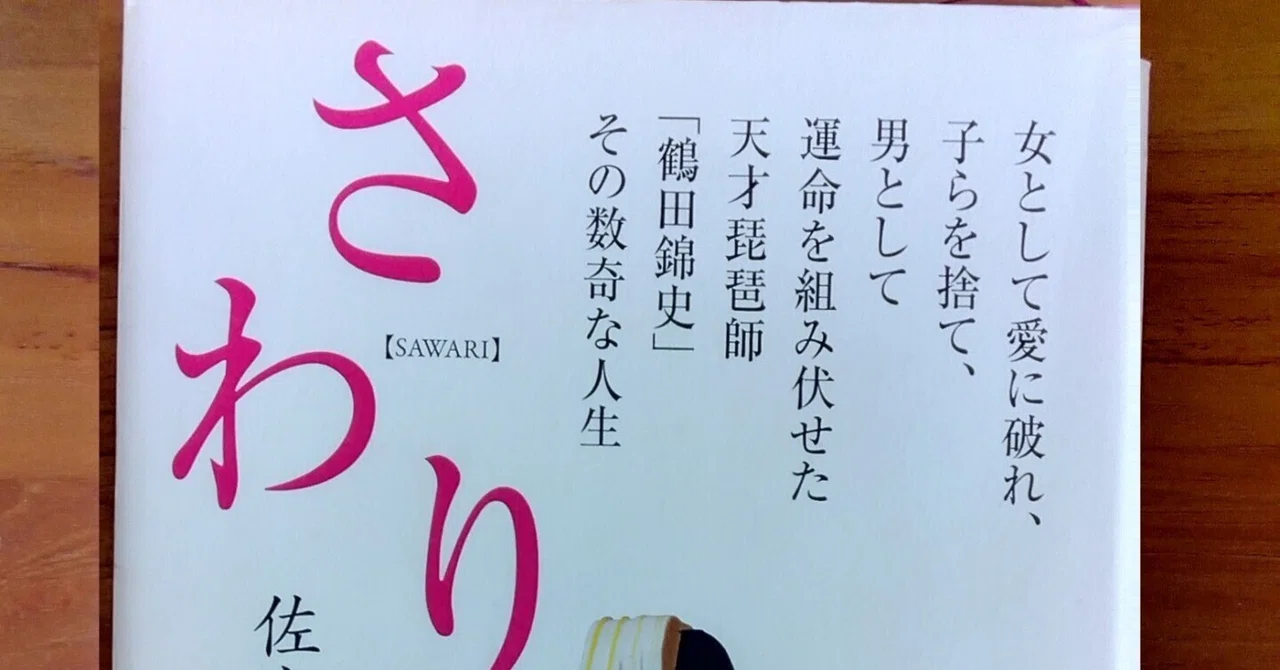 女として愛に破れ、
子らを捨て、
男として
運命を組み伏せた
天才琵琶師
「鶴田錦史」
その数奇な人生
さわり
【SAWARI】
佐